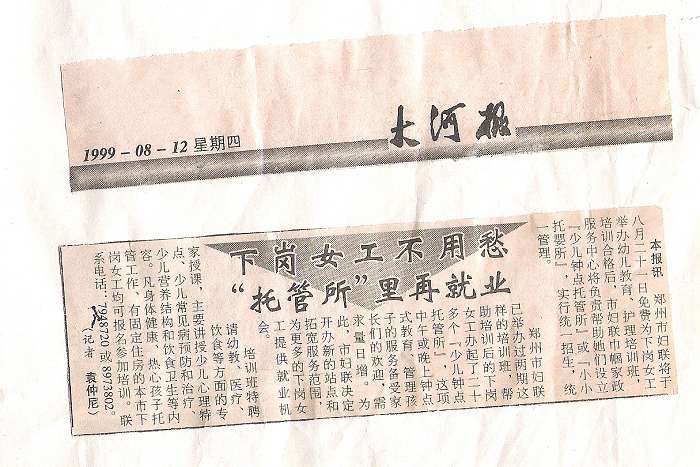 1999－08－12 星期四
大河报
下岗女工不用愁
“托管所”里再就业
本报讯 郑州市妇联将于
八月二十一日免费为下岗女工
举办幼儿教育、护理培训班，
培训合格后，市妇联巾帼家政
服务中心将负责帮助她们设立
“少儿钟点托管所”或“小小
托婴所”，实行统一招生、统
一管理。
郑州市妇联
已举办过两期这
样的培训班，帮
助培训后的下岗
女工办起了二十
多个“少儿钟点
托管所”，这项
中午或晚上钟点
式教育、管理孩
子的服务备受家
长们的欢迎，需
求量日增。为
此，市妇联决定
开办新的站点和
拓宽服务范围，
为更多的下岗女
工提供就业机
会。
培训班特聘
请幼教、医疗、
饮食等方面的专
家授课，主要讲授少儿心理特
点、少儿常见病预防和治疗、
少儿营养结构和饮食卫生等内
容。凡身体健康、热心孩子托
管工作、有固定住房的本市下
岗女工均可报名参加培训。联
系电话：7948720 或 8973802。
（记者 袁仲尼）